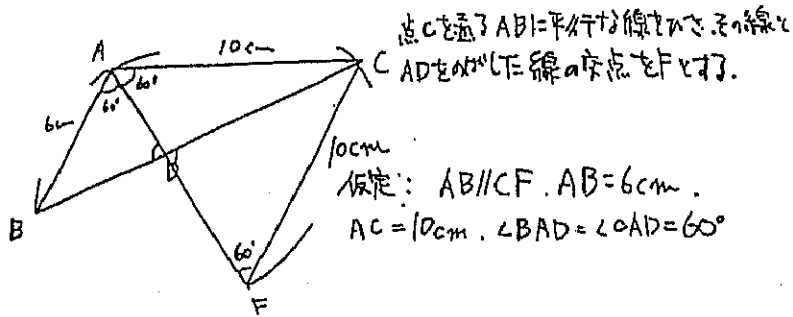 点Cを通るABに平行な線をひき、その線と
ADをのばした線の交点をFとする.
A
10cm
C
60°
60°
6cm
10cm
D
B
仮定: AB//CF. AB=6cm.
AC=10cm. ∠BAD=∠CAD=60°
60°
F